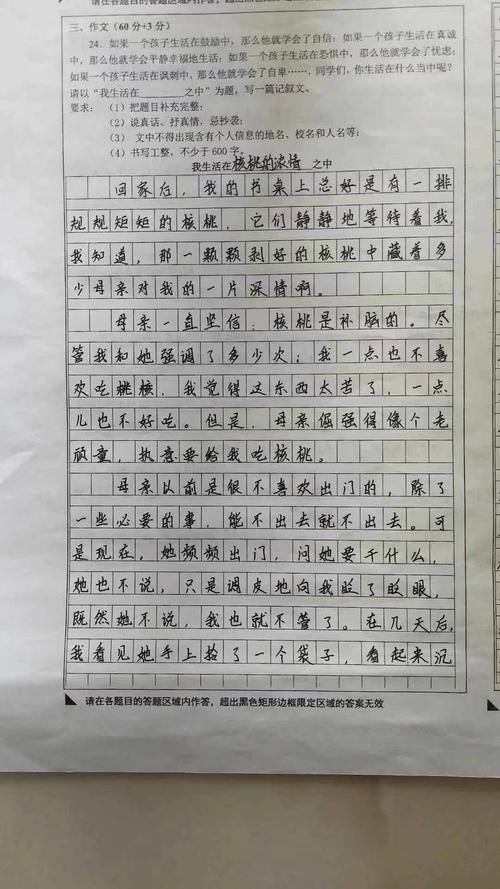 请在各题目的答题区域内作答,超出黑色矩形边框限定区域的答案无效
三、作文(60分+3分)
24. 如果一个孩子生活在鼓励中,那么他就学会了自信;如果一个孩子生活在真诚
中,那么他就学会平静幸福地生活;如果一个孩子生活在恐惧中,那么他就学会了忧虑;
如果一个孩子生活在讽刺中,那么他就学会了自卑……,同学们,你生活在什么当中呢?
请以“我生活在________之中”为题,写一篇记叙文。
要求: (1)把题目补充完整;
(2)说真话、抒真情,忌抄袭;
(3) 文中不得出现含有个人信息的地名、校名和人名等;
(4)书写工整,不少于600字。
我生活在核桃的浓情之中
回家后,我的书桌上总好是有一排
规规矩矩的核桃,它们静静地等待着我,
我知道,那一颗颗剥好的核桃中藏着多
少母亲对我的一片深情啊。
母亲一直坚信:核桃是补脑的。尽
管我和她强调了多少次:我一点也不喜
欢吃桃核,我觉得这东西太苦了,一点
儿也不好吃。但是,母亲倔强得像个老
顽童,执意要给我吃核桃。
母亲以前是很不喜欢出门的,除了
一些必要的事,能不出去就不出去。可
是现在,她频频出门,问她要干什么,
她也不说,只是调皮地向我眨了眨眼,
既然她不说,我也就不管了。在几天后,
我看见她手上拾了一个袋子,看起来沉
请在各题目的答题区域内作答,超出黑色矩形边框限定区域的答案无效